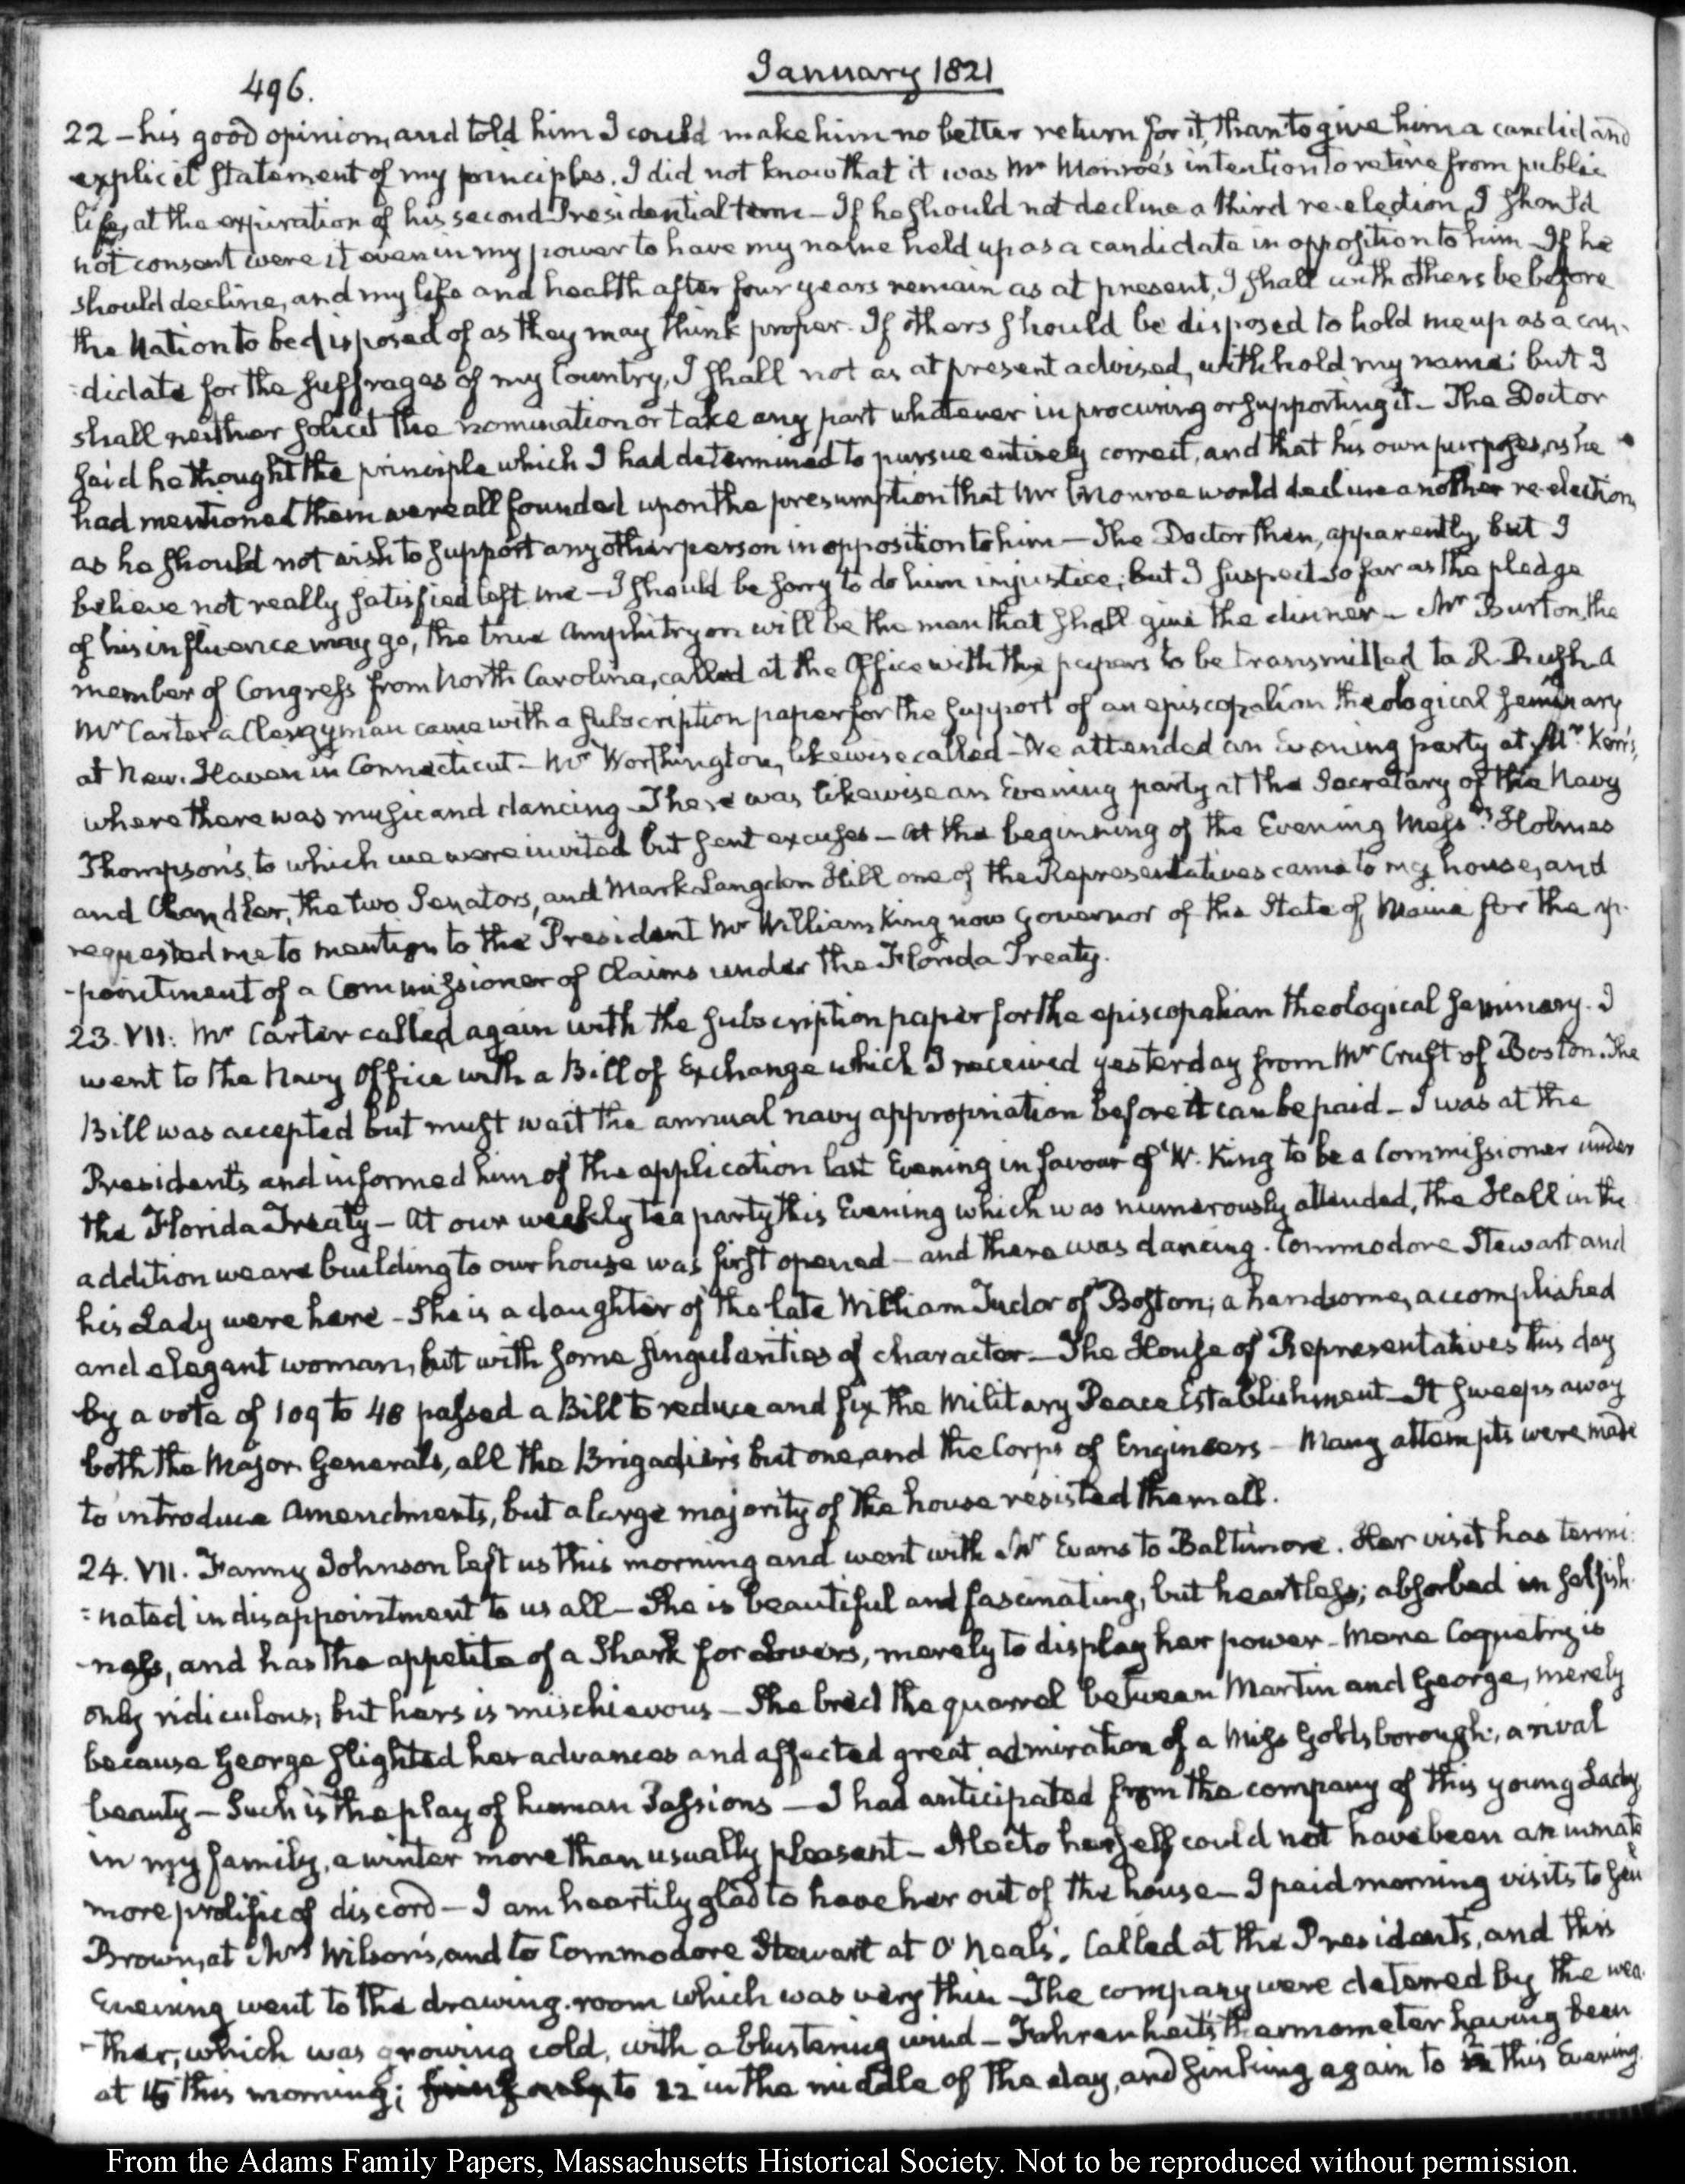 496.
January 1821
22 – his good opinion, and told him I could make him no better return for it, than to give him a candid and
explicit statement of my principles. I did not know that it was Mr Monroe's intention to retire from public
life, at the expiration of his second Presidential term – If he should not decline a third re-election, I should
not consent were it even in my power to have my name held up as a candidate in opposition to him – If he
should decline, and my life and health after four years remain as at present, I shall with others be before
the Nation to be disposed of as they may think proper. If others should be disposed to hold me up as a can-
:didate for the suffrages of my Country, I shall not as at present advised, withhold my name; but I
shall neither solicit the nomination or take any part whatever in procuring or supporting it – The Doctor
said he thought the principle which I had determined to pursue entirely correct, and that his own purposes, as he
had mentioned them were all founded upon the presumption that Mr Monroe would decline another re-election,
as he should not wish to support any other person in opposition to him – The Doctor then, apparently, but I
believe not really satisfied left me – I should be sorry to do him injustice; but I suspect so far as the pledge
of his influence may go, the true Amphitryon will be the man that shall give the dinner – Mr Burton, the
member of Congress from North Carolina, called at the Office with the papers to be transmitted to R. Rush. A
Mr Carter a Clergyman came with a subscription paper for the support of an episcopalian theological seminary
at New-Haven in Connecticut – Mr Worthington, likewise called – We attended an Evening party at Mr Kerr's,
where there was music and dancing – There was likewise an Evening party at the Secretary of the Navy
Thompson's, to which we were invited but sent excuses – At the beginning of the Evening Messrs Holmes
and Chandler, the two Senators, and Mark Langdon Hill one of the Representatives came to my house, and
requested me to mention to the President Mr William King now Governor of the State of Maine for the ap-
-pointment of a Commissioner of Claims under the Florida Treaty.
23. VII: Mr Carter called again with the subscription paper for the episcopalian theological seminary. I
went to the Navy Office with a Bill of Exchange which I received yesterday from Mr Cruft of Boston. The
Bill was accepted but must wait the annual navy appropriation before it can be paid – I was at the
President's and informed him of the application last Evening in favour of W. King to be a Commissioner under
the Florida Treaty – At our weekly tea party this Evening which was numerously attended, the Hall in the
addition we are building to our house was first opened – and there was dancing. Commodore Stewart and
his Lady were here – She is a daughter of the late William Tudor of Boston; a handsome, accomplished
and elegant woman, but with some singularities of character – The House of Representatives this day
by a vote of 109 to 48 passed a Bill to reduce and fix the Military Peace Establishment – It sweeps away
both the Major Generals, all the Brigadiers but one, and the Corps of Engineers – Many attempts were made
to introduce amendments, but a large majority of the house resisted them all.
24. VII. Fanny Johnson left us this morning and went with Mr Evans to Baltimore. Her visit has termi:
:nated in disappointment to us all – She is beautiful and fascinating, but heartless; absorbed in selfish-
-ness, and has the appetite of a Shark for Lovers, merely to display her power – Mere Coquetry is
only ridiculous; but hers is mischievous – She bred the quarrel between Martin and George, merely
because George slighted her advances and affected great admiration of a Miss Goldsborough; a rival
beauty – Such is the play of human Passions – I had anticipated from the company of this young Lady
in my family, a winter more than usually pleasant – Alecto herself could not have been an inmate
more prolific of discord – I am heartily glad to have her out of the house – I paid morning visits to Genl
Brown, at Mrs Wilson's, and to Commodore Stewart at O'Neal's. Called at the President's, and this
Evening went to the drawing-room which was very thin – The company were deterred by the wea-
-ther, which was growing cold, with a blustering wind – Fahrenheit's thermometer having been
at 15 this morning; to 22 in the middle of the day, and sinking again to this Evening.
From the Adams Family Papers, Massachusetts Historical Society. Not to be reproduced without permission.